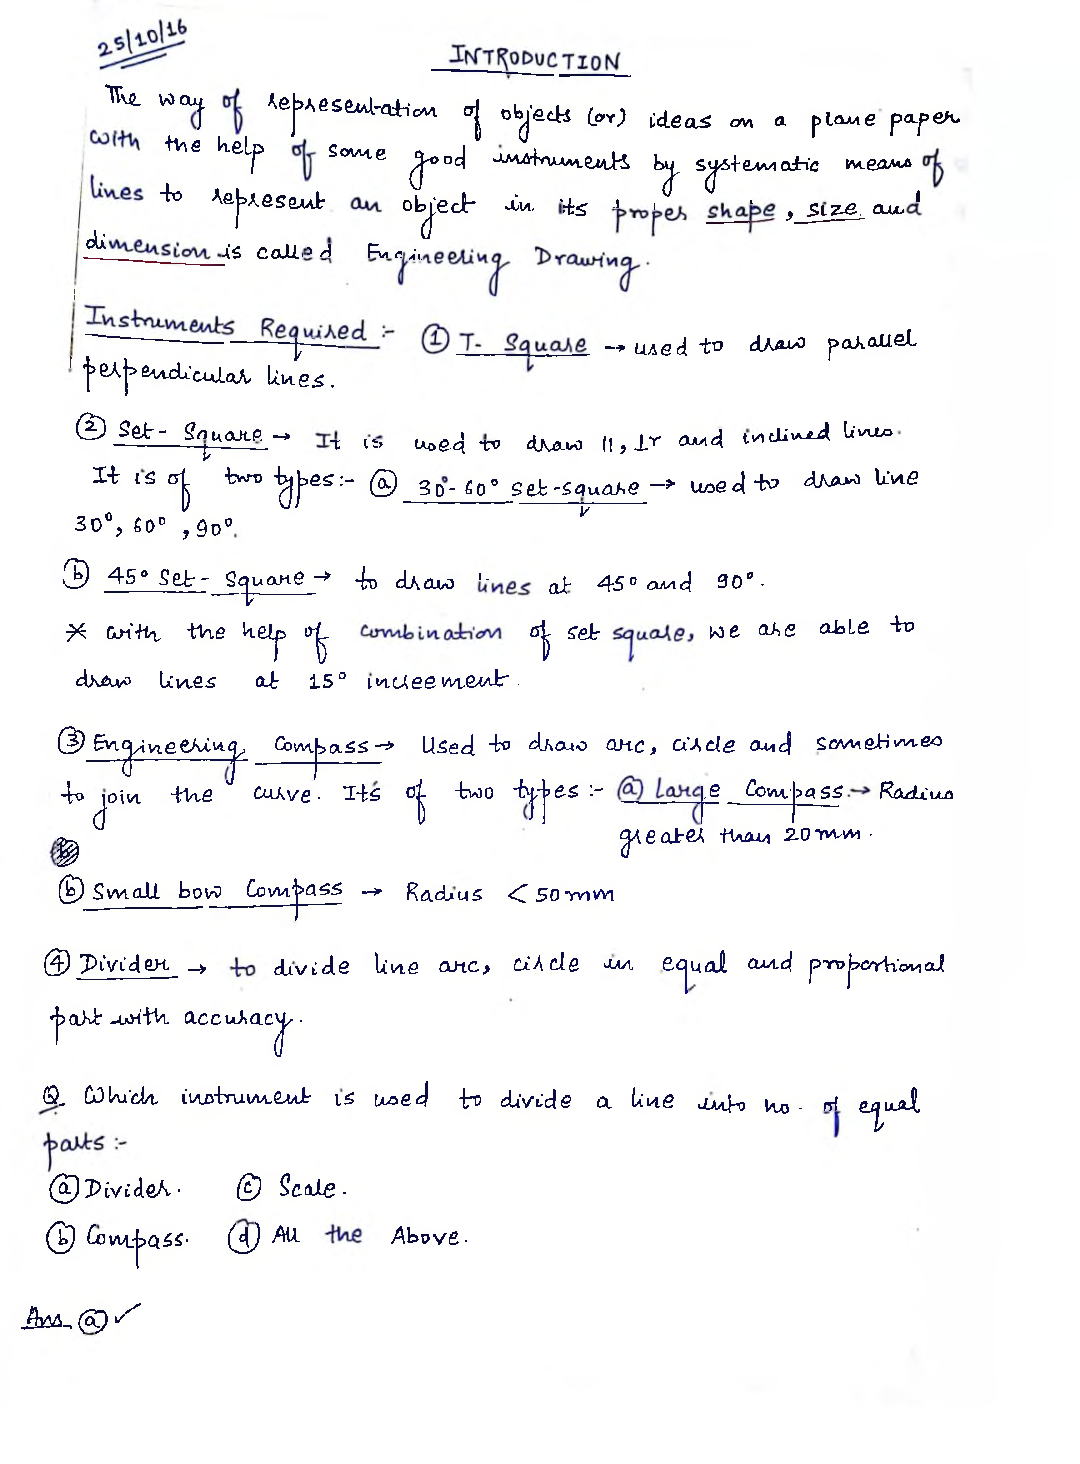 25/10/16
INTRODUCTION
The way of representation of objects (or) ideas on a plane paper
with the help of some good instruments by systematic means of
lines to represent an object in its proper shape, size and
dimension is called Engineering Drawing.
Instruments Required :- ① T- Square → used to draw parallel
perpendicular lines.
② Set- Square → It is used to draw ||, ⊥r and inclined lines.
It is of two types:- ⓐ 30°-60° set-square → used to draw line
30°, 60°, 90°.
ⓑ 45° Set- Square → to draw lines at 45° and 90°.
* with the help of combination of set square, we are able to
draw lines at 15° increement.
③ Engineering Compass → Used to draw arc, circle and sometimes
to join the curve. It's of two types :- ⓐ Large Compass → Radius
greater than 20mm.
ⓑ Small bow Compass → Radius < 50mm
④ Divider → to divide line arc, circle in equal and proportional
part with accuracy.
Q Which instrument is used to divide a line into no. of equal
parts :-
ⓐ Divider. ⓒ Scale.
ⓑ Compass. ⓓ All the Above.
Ans ⓐ ✓